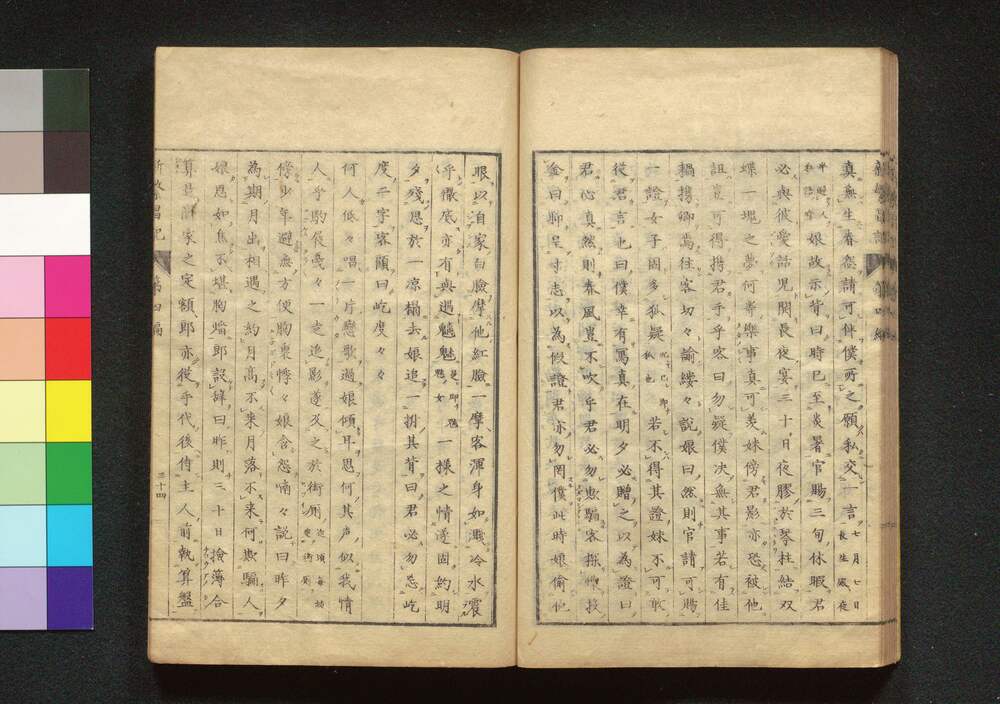 真無生春怨請可併僕所之願私交一言七月七日長生殿夜
半無人私語娘故示背曰時已至炎暑官賜三旬休暇君
必與彼愛話児関長夜宴三十日夜膠於琴柱結双
蝶一塊之夢何等樂事真可羨妹傍君影亦恐被他
詛豈可得携君手乎客曰勿疑僕决無其事若有佳
構携卿焉往客切々諭縷々説娘曰然則官請可賜
一證女子固多狐疑若不得其證妹不可敢
從君言也曰僕幸有寫真在明夕必贈之以為證曰
君心真然則春風豈不吹乎君必勿欺騙客探懐投
金曰聊呈寸志以為假證君亦勿罔僕此時娘偷他
眼以自家白臉摩他紅臉一摩客渾身如濺冷水濃
乎徹底亦有與遇魑魅一様之情遂固約明
夕殘思於一凉榻去娘追一拊其背曰君必勿忘屹
度二字客顧曰屹度々々
何人低々唱一片戀歌過娘傾耳思何其声似我情
人乎跑展幾々一走追影遂及之於街側
條少年避無方便胸裏悸々娘含怨喃々説曰昨夕
為期月出相遇之約月高不来月落不来何欺騙人
娘思如焦不堪胸惱郎誤辭曰昨則三十日撿簿合
算是商家之定額郎亦從手代後侍主人前執算盤
三十四